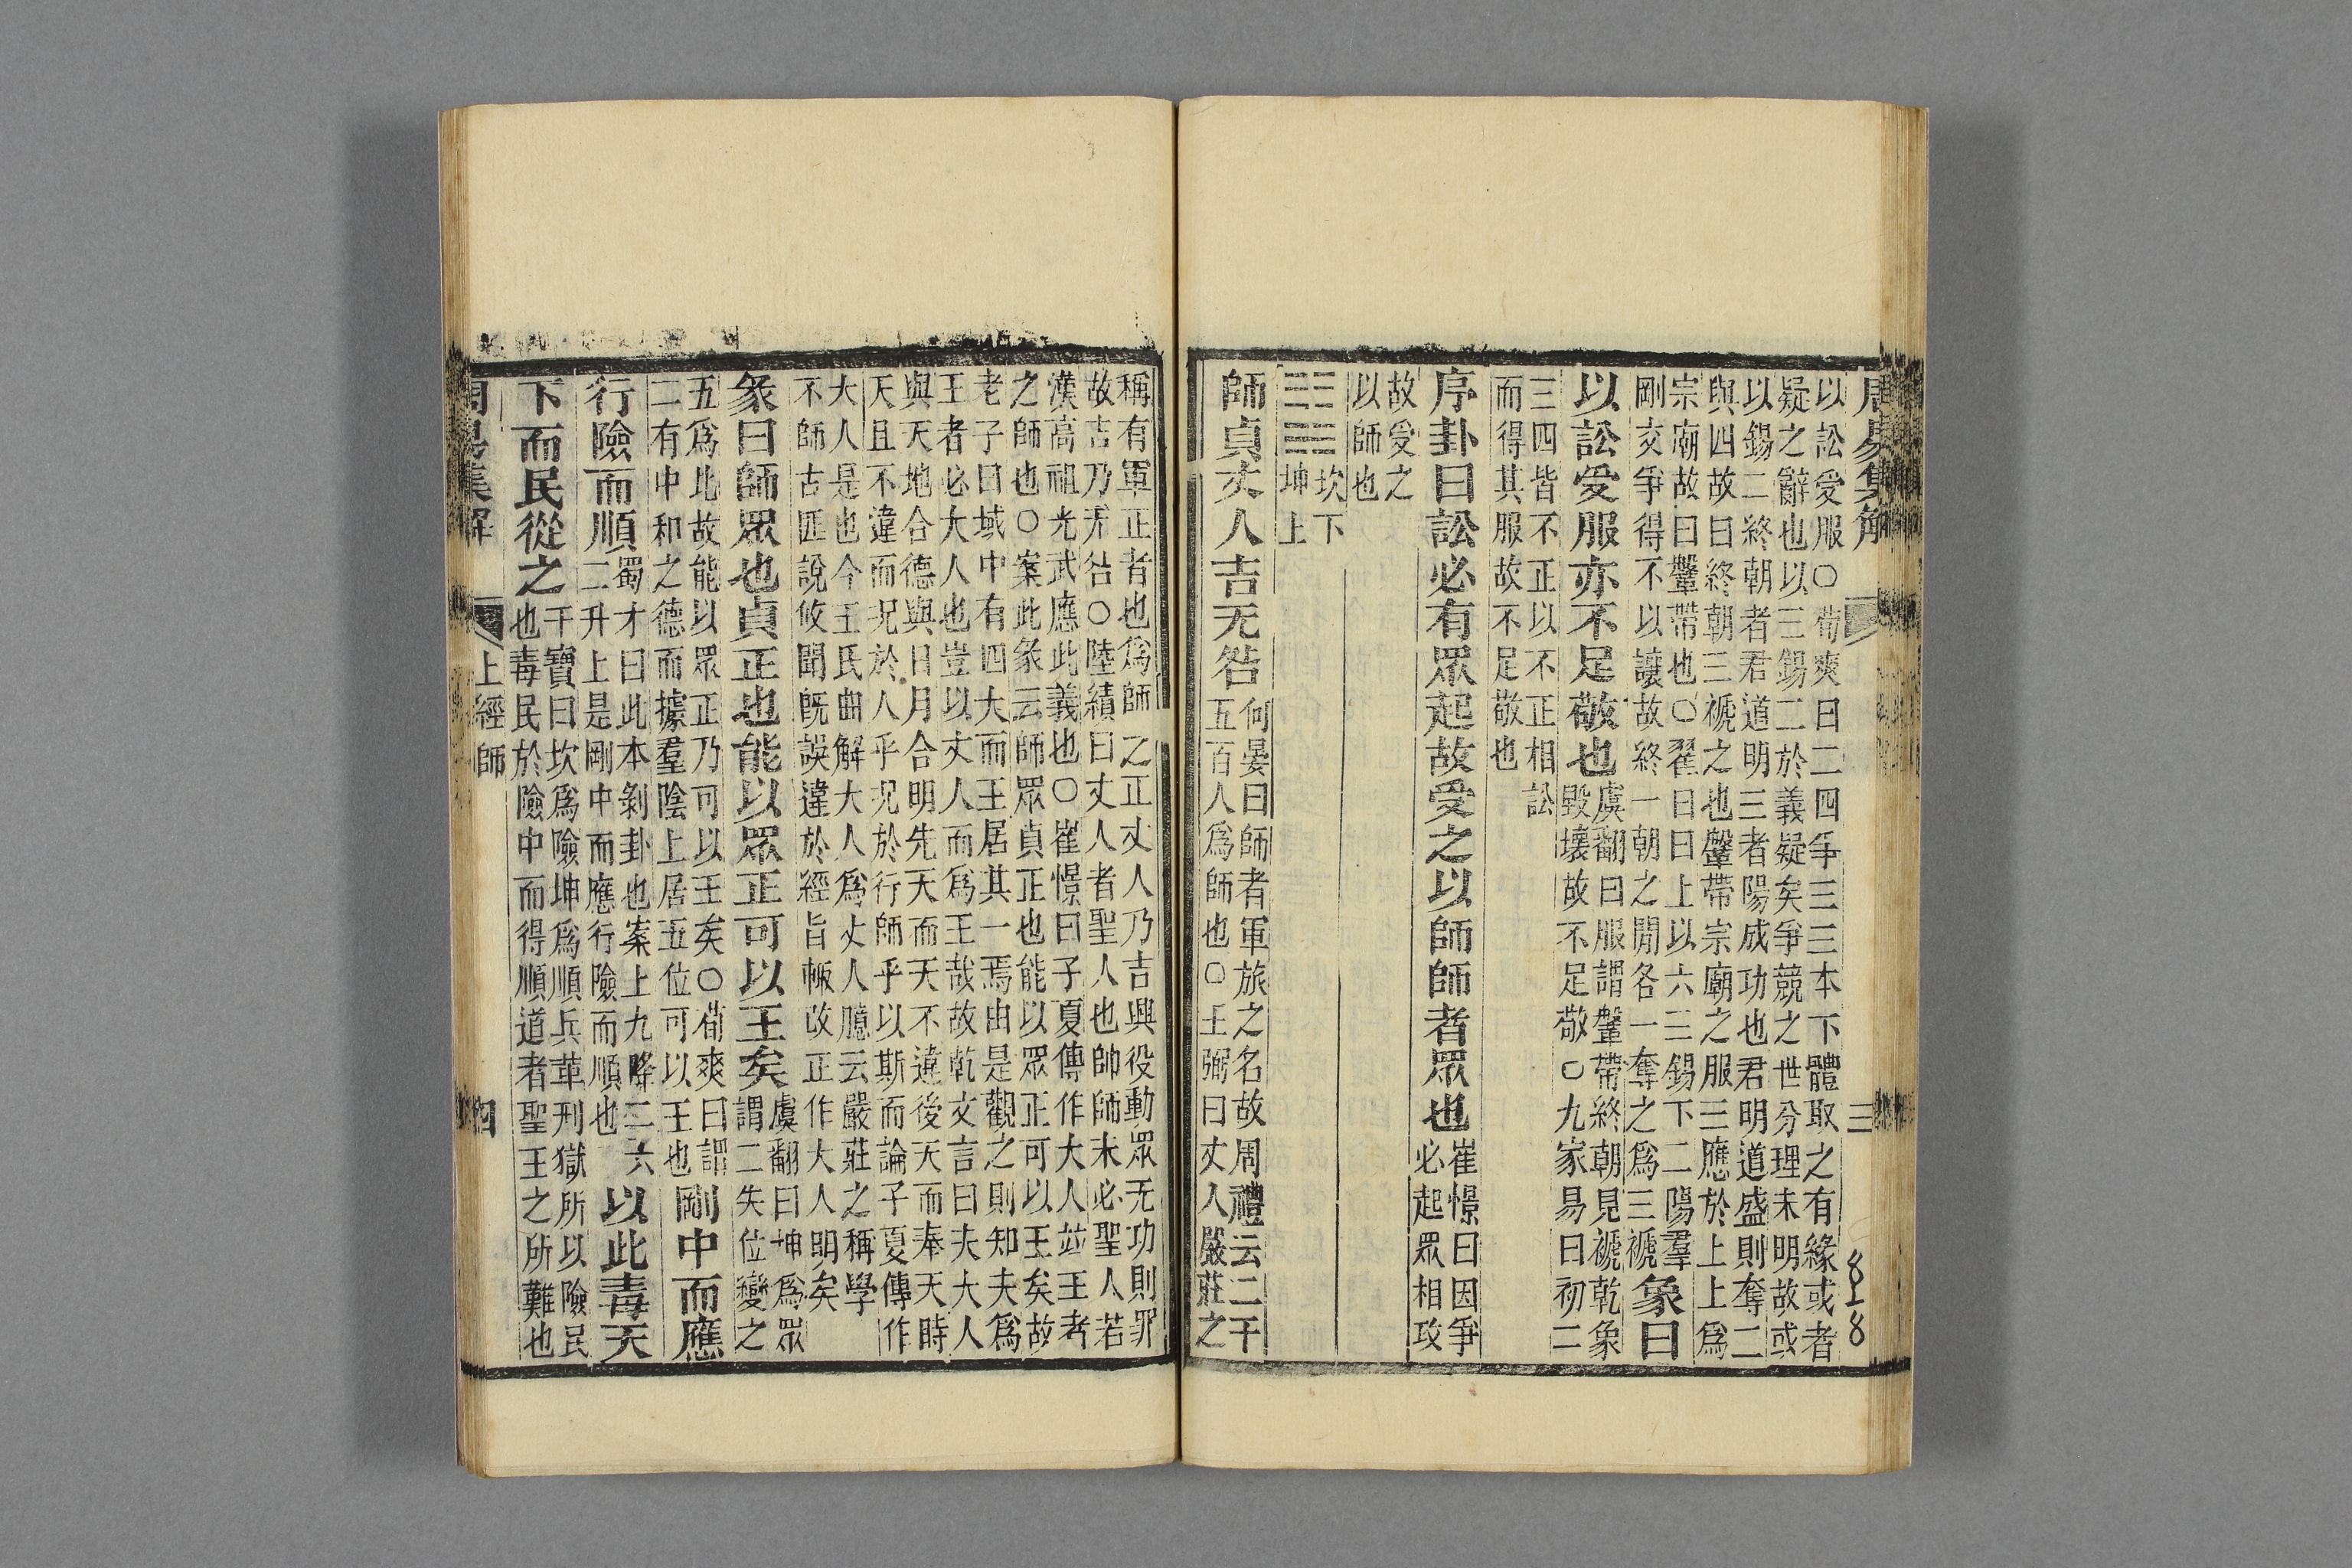 周易集解
三
以訟受服○荀爽曰二四爭三三本下體取之有緣或者
疑之辭也以三錫二於義疑矣爭競之世分理未明故或
以錫二終朝者君道明三者陽成功也君明道盛則奪二
與四故曰終朝三褫之也鞶帶宗廟之服三應於上上爲
宗廟故曰鞶帶也○翟曰曰上以六三錫下二陽羣
剛交爭得不以讓故終一朝之閒各一奪之爲三褫
象曰
以訟受服亦不足敬也
虞翻曰服謂鞶帶終朝見褫乾象
毀壞故不足敬○九家易曰初二
三四皆不正以不正相訟
而得其服故不足敬也
序卦曰訟必有眾起故受之以師師者眾也
崔憬曰因爭
必起眾相攻
故受之
以師也
坎下
坤上
師貞丈人吉无咎
何晏曰師者軍旅之名故周禮云二千
五百人爲師也○王弼曰丈人嚴莊之
稱有軍正者也爲師之正丈人乃吉興役動眾无功則罪
故吉乃无咎○陸績曰丈人者聖人也帥師未必聖人若
漢高祖光武應此義也○崔憬曰子夏傳作大人並王者
之師也○案此彖云師眾貞正也能以眾正可以王矣故
老子曰域中有四大而王居其一焉由是觀之則知夫爲
王者必大人也豈以丈人而爲王哉故乾文言曰夫大人
與天地合德與日月合明先天而天不違後天而奉天時
天且不違而況於人乎況於行師乎以斯而論子夏傳作
大人是也今王氏曲解大人爲丈人臆云嚴莊之稱學
不師古匪說攸聞旣誤違於經旨輒改正作大人明矣
彖曰師眾也貞正也能以眾正可以王矣
虞翻曰坤爲眾
謂二失位變之
五爲此故能以眾正乃可以王矣○荀爽曰謂
二有中和之德而據羣陰上居五位可以王也
剛中而應
行險而順
蜀才曰此本剝卦也案上九降二六
二升上是剛中而應行險而順也
以此毒天
下而民從之
干寶曰坎爲險坤爲順兵革刑獄所以險民
也毒民於險中而得順道者聖王之所難也
周易集解
上經師
四